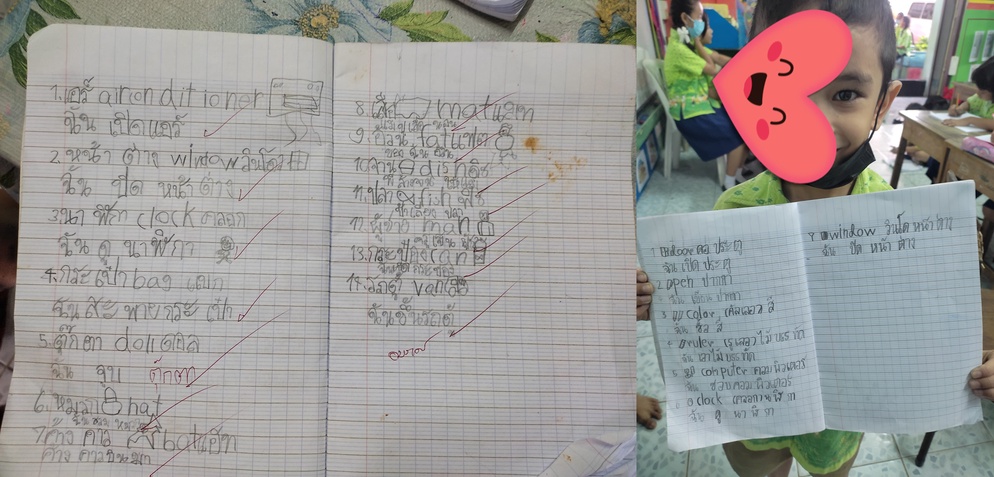 1. แอร์ airconditioner
ฉัน เปิดแอร์
2. หน้า ต่าง window วินโดว์
ฉัน ปิด หน้าต่าง
3. นาฬิกา clock คลอก
ฉัน ดู นาฬิกา
4. กระเป๋า bag แบก
ฉัน สะพายกระเป๋า
5. ตุ๊กตา doll ดอล
ฉัน จูบ ตุ๊กตา
6. หมวก hat
7. ค้างคาว bat แบท
ค้างคาวบินมา
8. mat แมท
9. rat แรท
10. จาน dish ดิช
11. ปลา fish ฟิช
12. ผู้ชาย man
13. กระป๋อง can
14. รถตู้ van
ฉันขึ้นรถตู้
1 door ดอ ประตู
ฉัน เปิด ประตู
2 apen ปากกา
ฉัน เขียน ปากกา
3 color คัลเลอว สี
ฉัน ซื้อ สี
4 ruler รูเลอว ไม้ บรรทัด
ฉัน เอาไม้ บรรทัด
5 computer คอมพิวเตอร์
ฉัน ชอบคอมพิวเตอร์
6 clock คลอก นาฬิกา
ฉัน ดู นาฬิกา
window วินโด หน้าต่าง
ฉัน ปิด หน้าต่าง